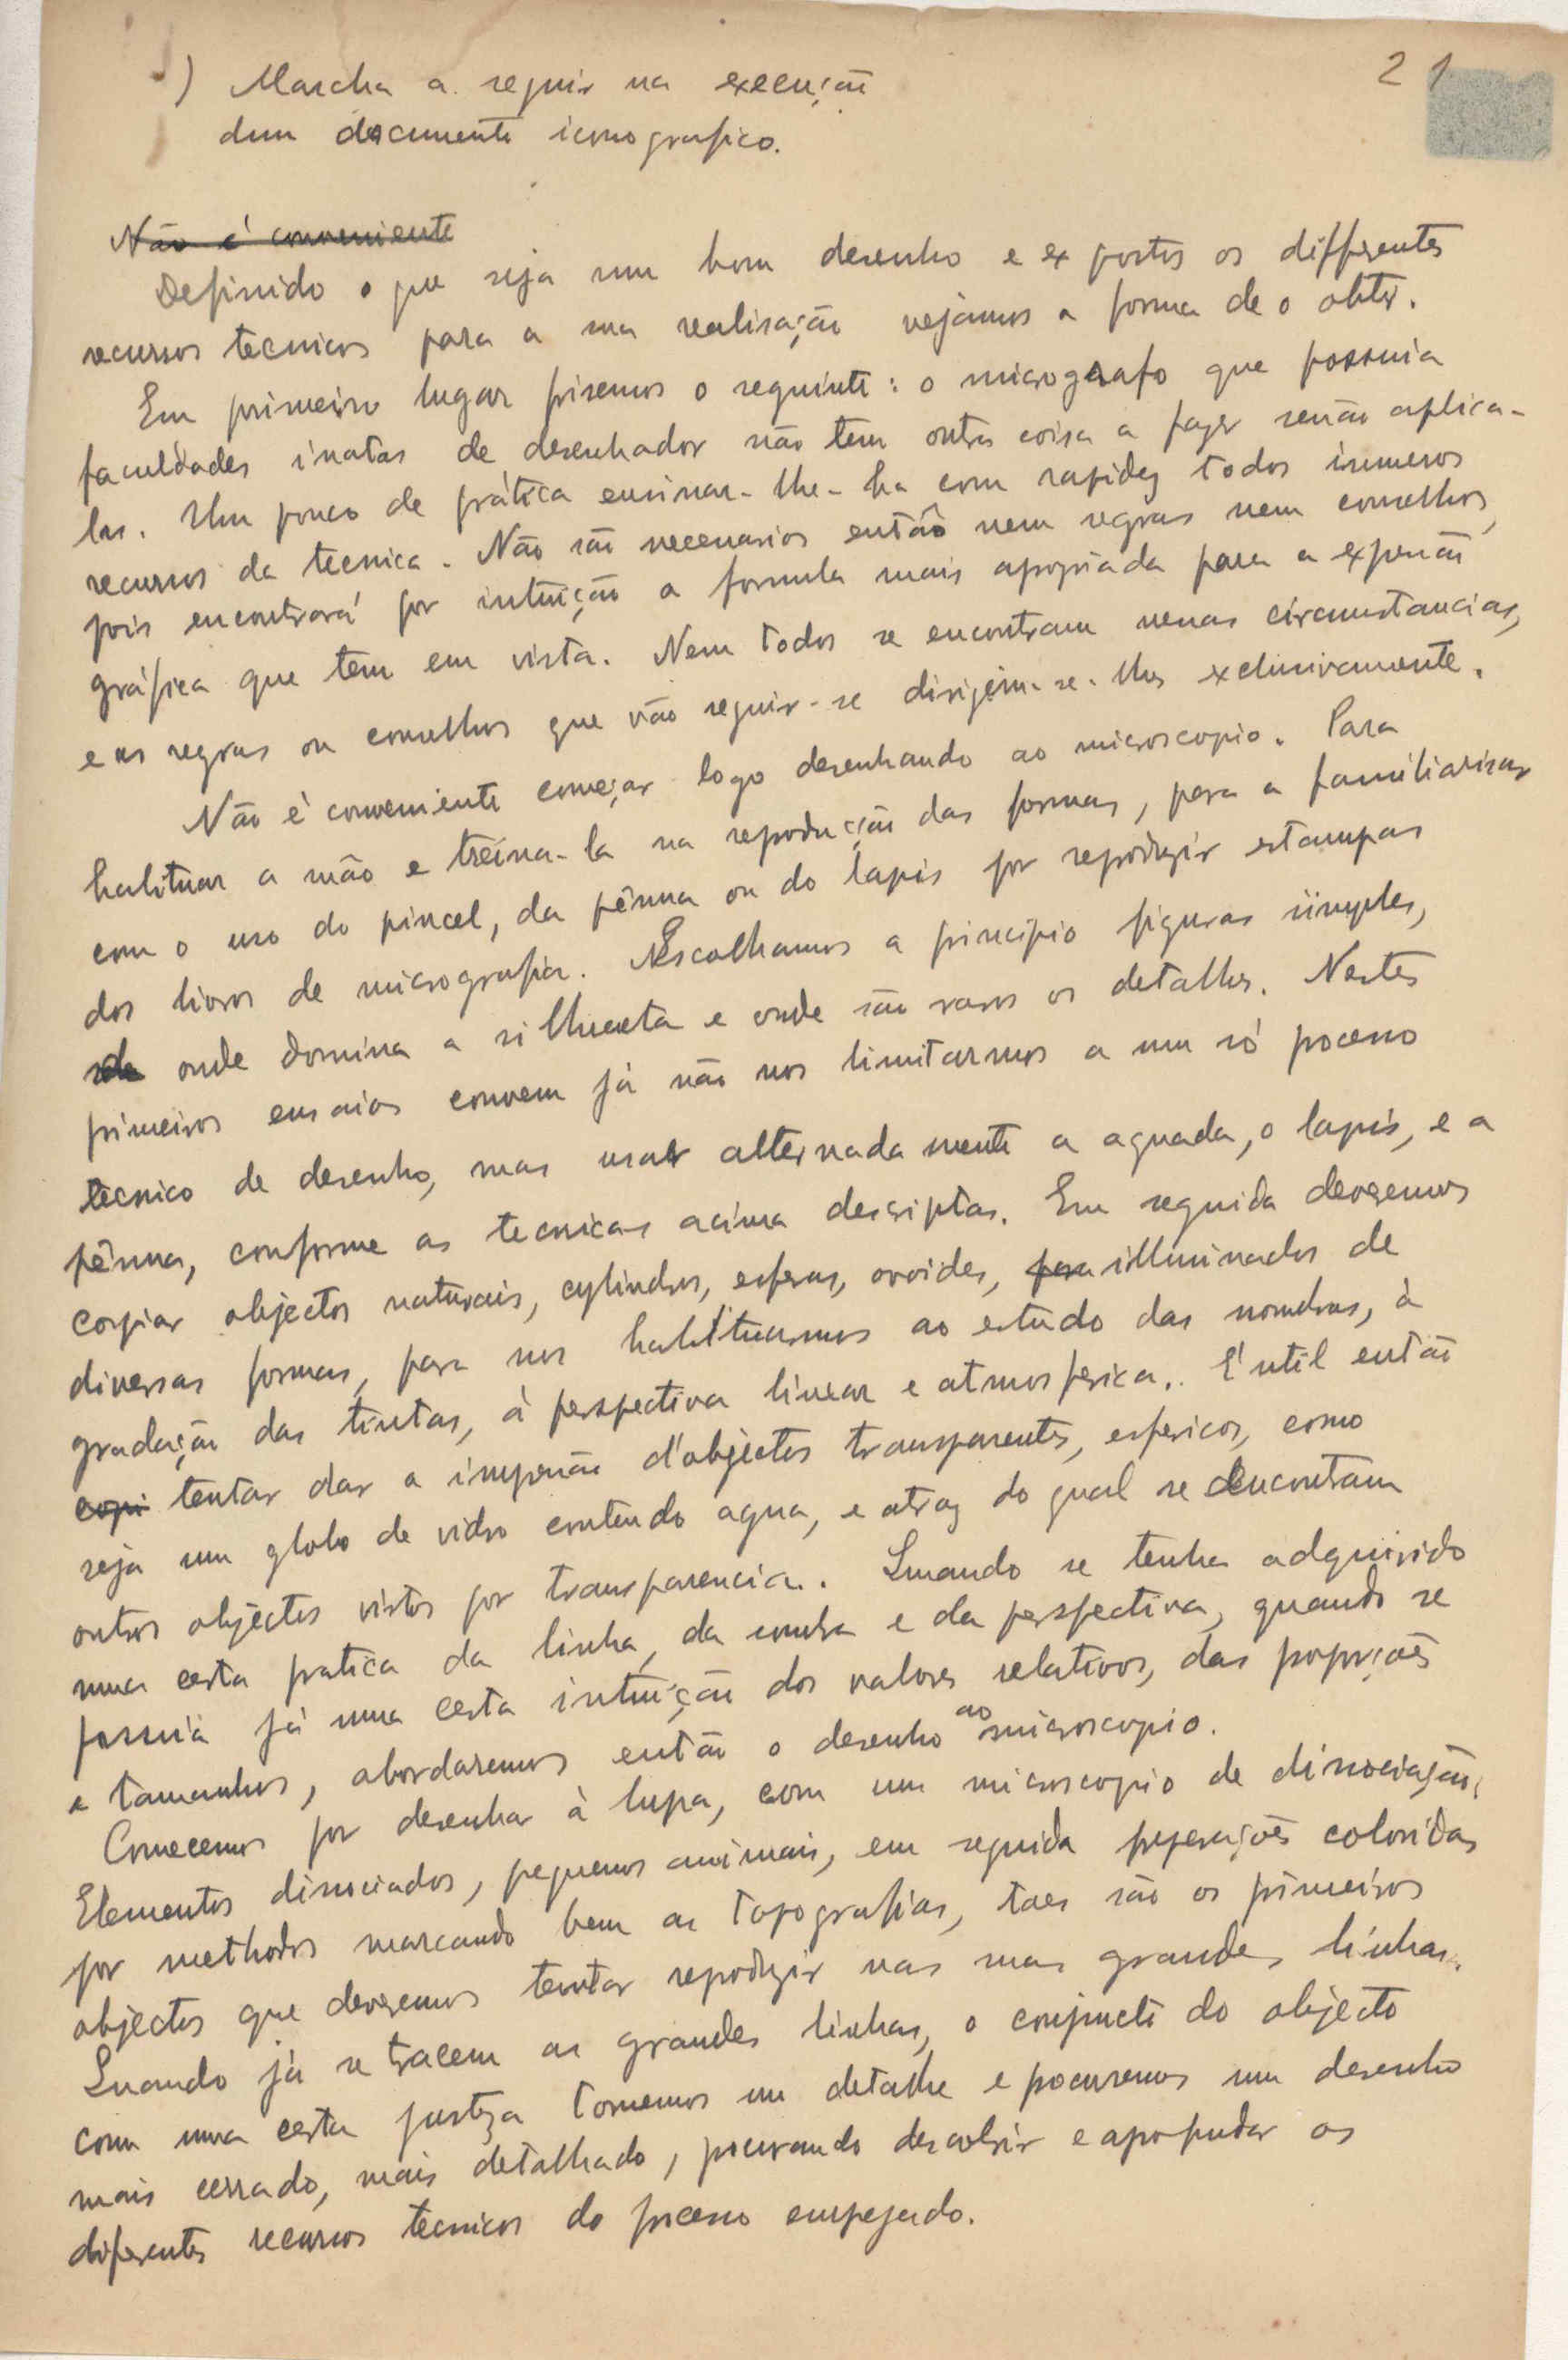 21
) Marcha a seguir na execução
dum documento iconografico.
Não é conveniente
Definido o que seja um bom desenho e expostos os differentes
recursos tecnicos para a sua realisação vejamos a forma de o obter.
Em primeiro lugar frisemos o seguinte: o micrografo que possuia
faculdades inatas de desenhador não tem outra coisa a fazer senão aplica-
las. Um pouco de prática ensinar-lhe-ha com rapidez todos inumeros
recursos da tecnica. Não são necessarios então nem regras nem conselhos,
pois encontrará por intuição a formula mais apropriada para a expressão
gráfica que tem em vista. Nem todos se encontram nessas circumstancias,
e as regras ou conselhos que vão seguir-se dirijem-se-lhes exclusivamente.
Não é conveniente começar logo desenhando ao microscopio. Para
habituar a mão e treina-la na reprodução das formas, para a familiarisar
com o uso do pincel, da pênna ou do lapis por reproduzir estampas
dos livros de micrografia. Escolhamos a principio figuras simples,
onde domina a silhueta e onde são raros os detalhes. Nestes
primeiros ensaios convem já não nos limitarmos a um só processo
tecnico de desenho, mas usar alternadamente a aguada, o lapis, e a
pênna, conforme as tecnicas acima descriptas. Em seguida deveremos
copiar objectos naturais, cylindros, esferas, ovoides, para illuminados de
diversas formas, para nos habituarmos ao estudo das sombras, à
gradação das tintas, à perspectiva linear e atmosferica. É util então
copi tentar dar a impressão d'objectos transparentes, esfericos, como
seja um globo de vidro contendo agua, e atraz do qual se encontram
outros objectos vistos por transparencia. Quando se tenha adquirido
uma certa pratica da linha, da sombra e da perspectiva, quando se
possuia já uma certa intuição dos valores relativos, das proporções
e tamanhos, abordaremos então o desenho ao microscopio.
Comecemos por desenhar à lupa, com um microscopio de dissociação.
Elementos dissociados, pequenos animais, em seguida preparações coloridas
por methodos marcando bem as topografias, taes são os primeiros
objectos que deveremos tentar reproduzir nas suas grandes linhas.
Quando já se tracem as grandes linhas, o conjuncto do objecto
com uma certa justeza tomemos um detalhe e procuremos um desenho
mais cerrado, mais detalhado, procurando descobrir e aprofundar os
diferentes recursos tecnicos do processo empregado.